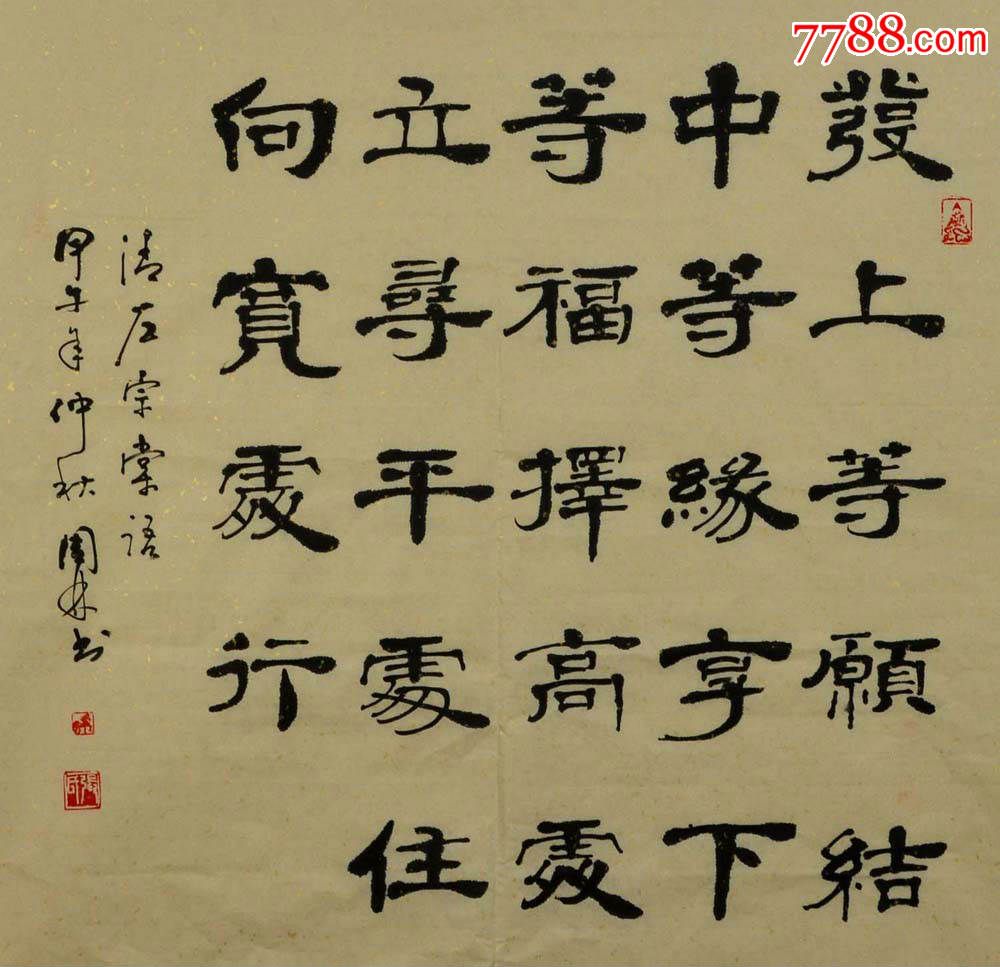 發上等願結
中等緣享下
等福擇高處
立尋平處住
向寬處行
清左宗棠語
甲午年仲秋國林书
7788.com